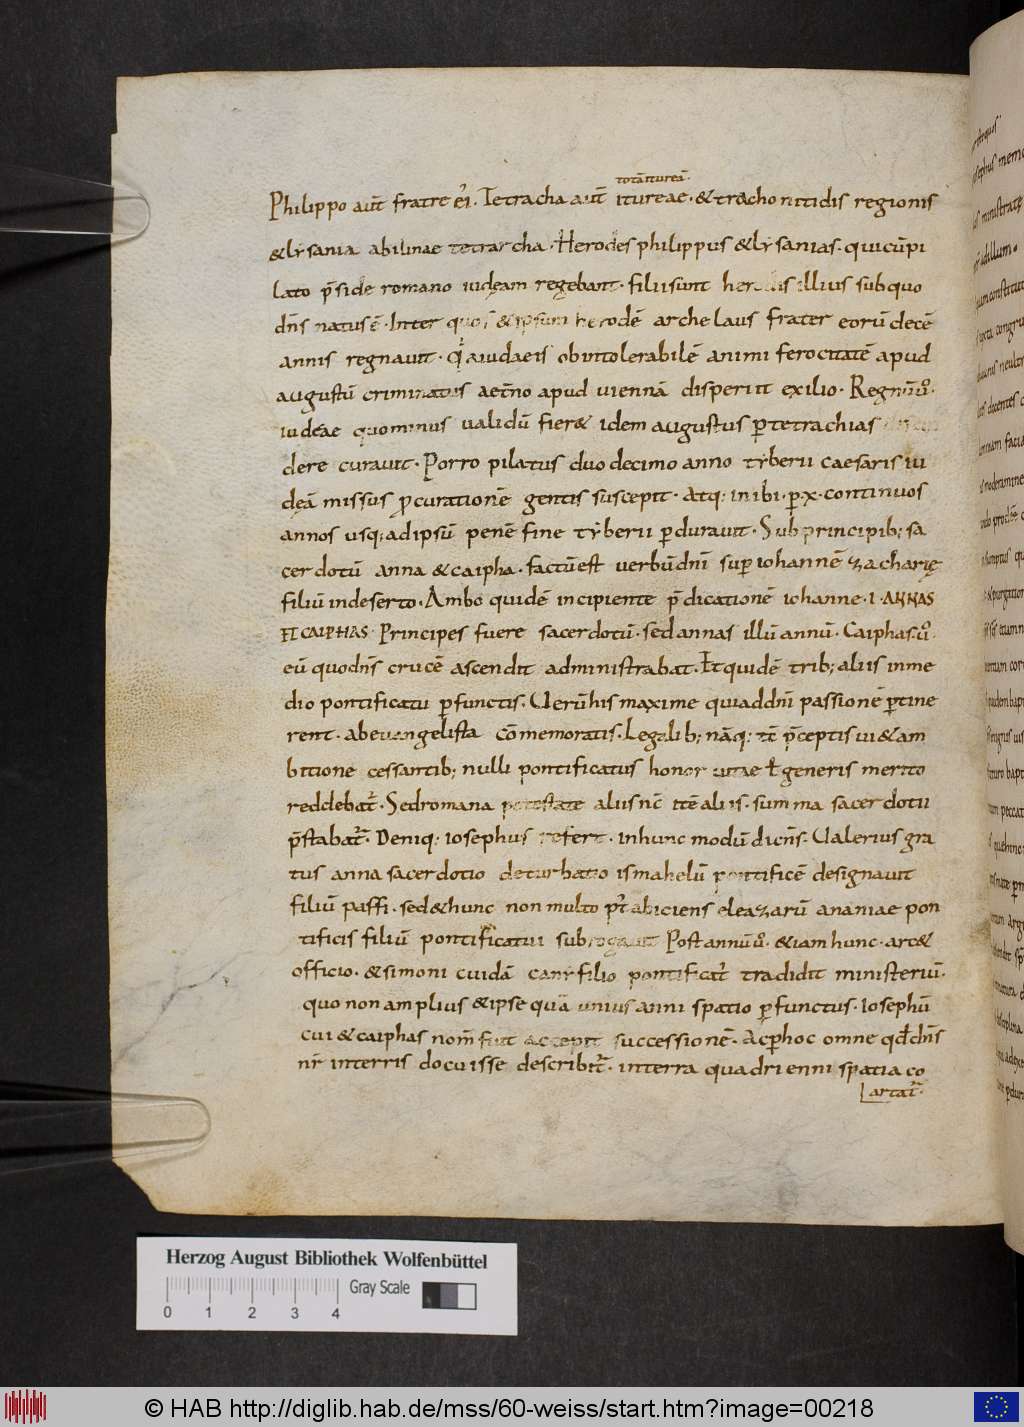 totā itureā.
Philippo aut̄ fratre ei᾽. Tetracha aut̄ itureae. & trachonitidis regionis
& lẏsania abilinae tetrarcha. Herodes philippus & lẏsanias. quicū pi
lato p̄side romano iudęam regebant. filii sunt herodis illius sub quo
dn̄s natus ē. Inter quos & ipsum herodē archelaus frater eorū decē
annis regnauit. q̇ a iudaeis ob intolerabilē animi ferocitatē apud
augustū criminatus aet̄no apud uiennā disperiit exilio. Regnū ů.
iudeae quominus ualidū fier& idem augustus ꝑ tetrachias
dere curauit. Porro pilatus duodecimo anno tẏberii caesaris iu
deā missus ꝓcurationē gentis suscepit. Atq; in ibi. ꝑ. x. continuos
annos usq; ad ipsū penē fine tẏberii ꝑdurauit. Sub principib; sa
cerdotū anna & caipha. factū est uerbū dn̄i sup iohannē zacharię
filiū in deserto. Ambo quidē incipiente p̄dicationē iohanne. i. ANNAS
ET CAIPHAS. Principes fuere sacerdotū. sed annas illū annū. Caiphas. ů.
eū quo dn̄s crucē ascendit administrabat. Et quidē trib; aliis in me
dio pontificatu ꝑfunctis. Uerū his maxime qui ad dn̄i passionē ꝑtine
rent. ab euangelista cōmemoratis. Legalib; nāq; tc̄ p̄ceptis ui & am
bitione cessantib; nulli pontificatus honor uitae ł generis merito
reddebat᾽. Sed romana potestate aliis nc̄ itē aliis. summa sacerdotii
p̄stabat᾽. Deniq; iosephus refert. in hunc modū dicn̄s. Ualerius gra
tus anna sacerdotio deturbato ismahelū pontificē designauit
filiū paffi. sed & hunc non multo p᾽t abiciens eleazarū ananiae pon
tificis filiū pontificatui subrogauit. Post annū ů. &iam hunc. arc&
officio. & simoni cuidā canẏfilio pontificat᾽ tradidit ministeriū.
quo non amplius & ipse quā unius anni spatio ꝑfunctus. iosephū
cui & caiphas nom̄ fuit accepit successionē. Ac ꝑhoc omne qđ dn̄s
nr̄ in terris docuisse describit᾽. interra quadrienni spatia co
artat᾽.
Herzog August Bibliothek Wolfenbüttel
Gray Scale
0 1 2 3 4
© HAB http://diglib.hab.de/mss/60-weiss/start.htm?image=00218